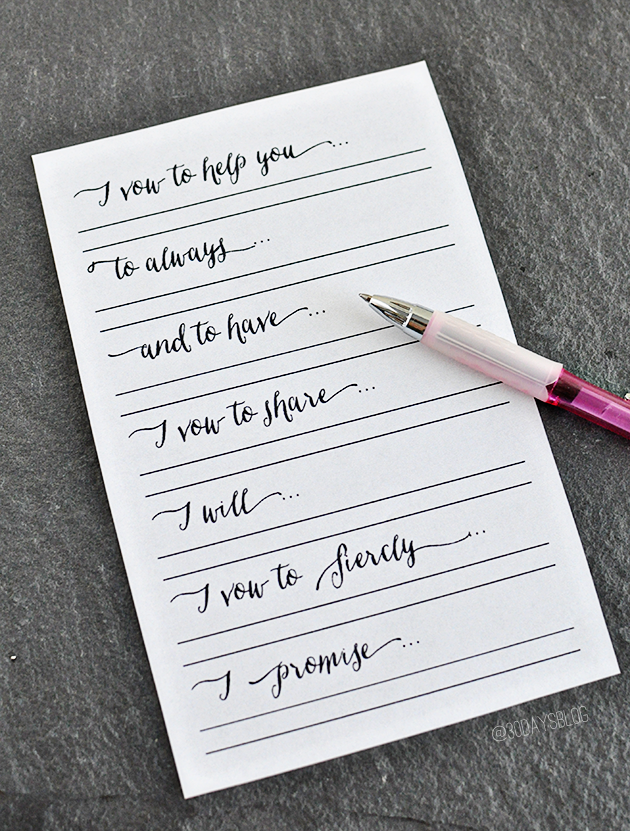 I vow to help you...
to always...
and to have...
I vow to share...
I will...
I vow to fiercly...
I promise...
@30DAYSBLOG